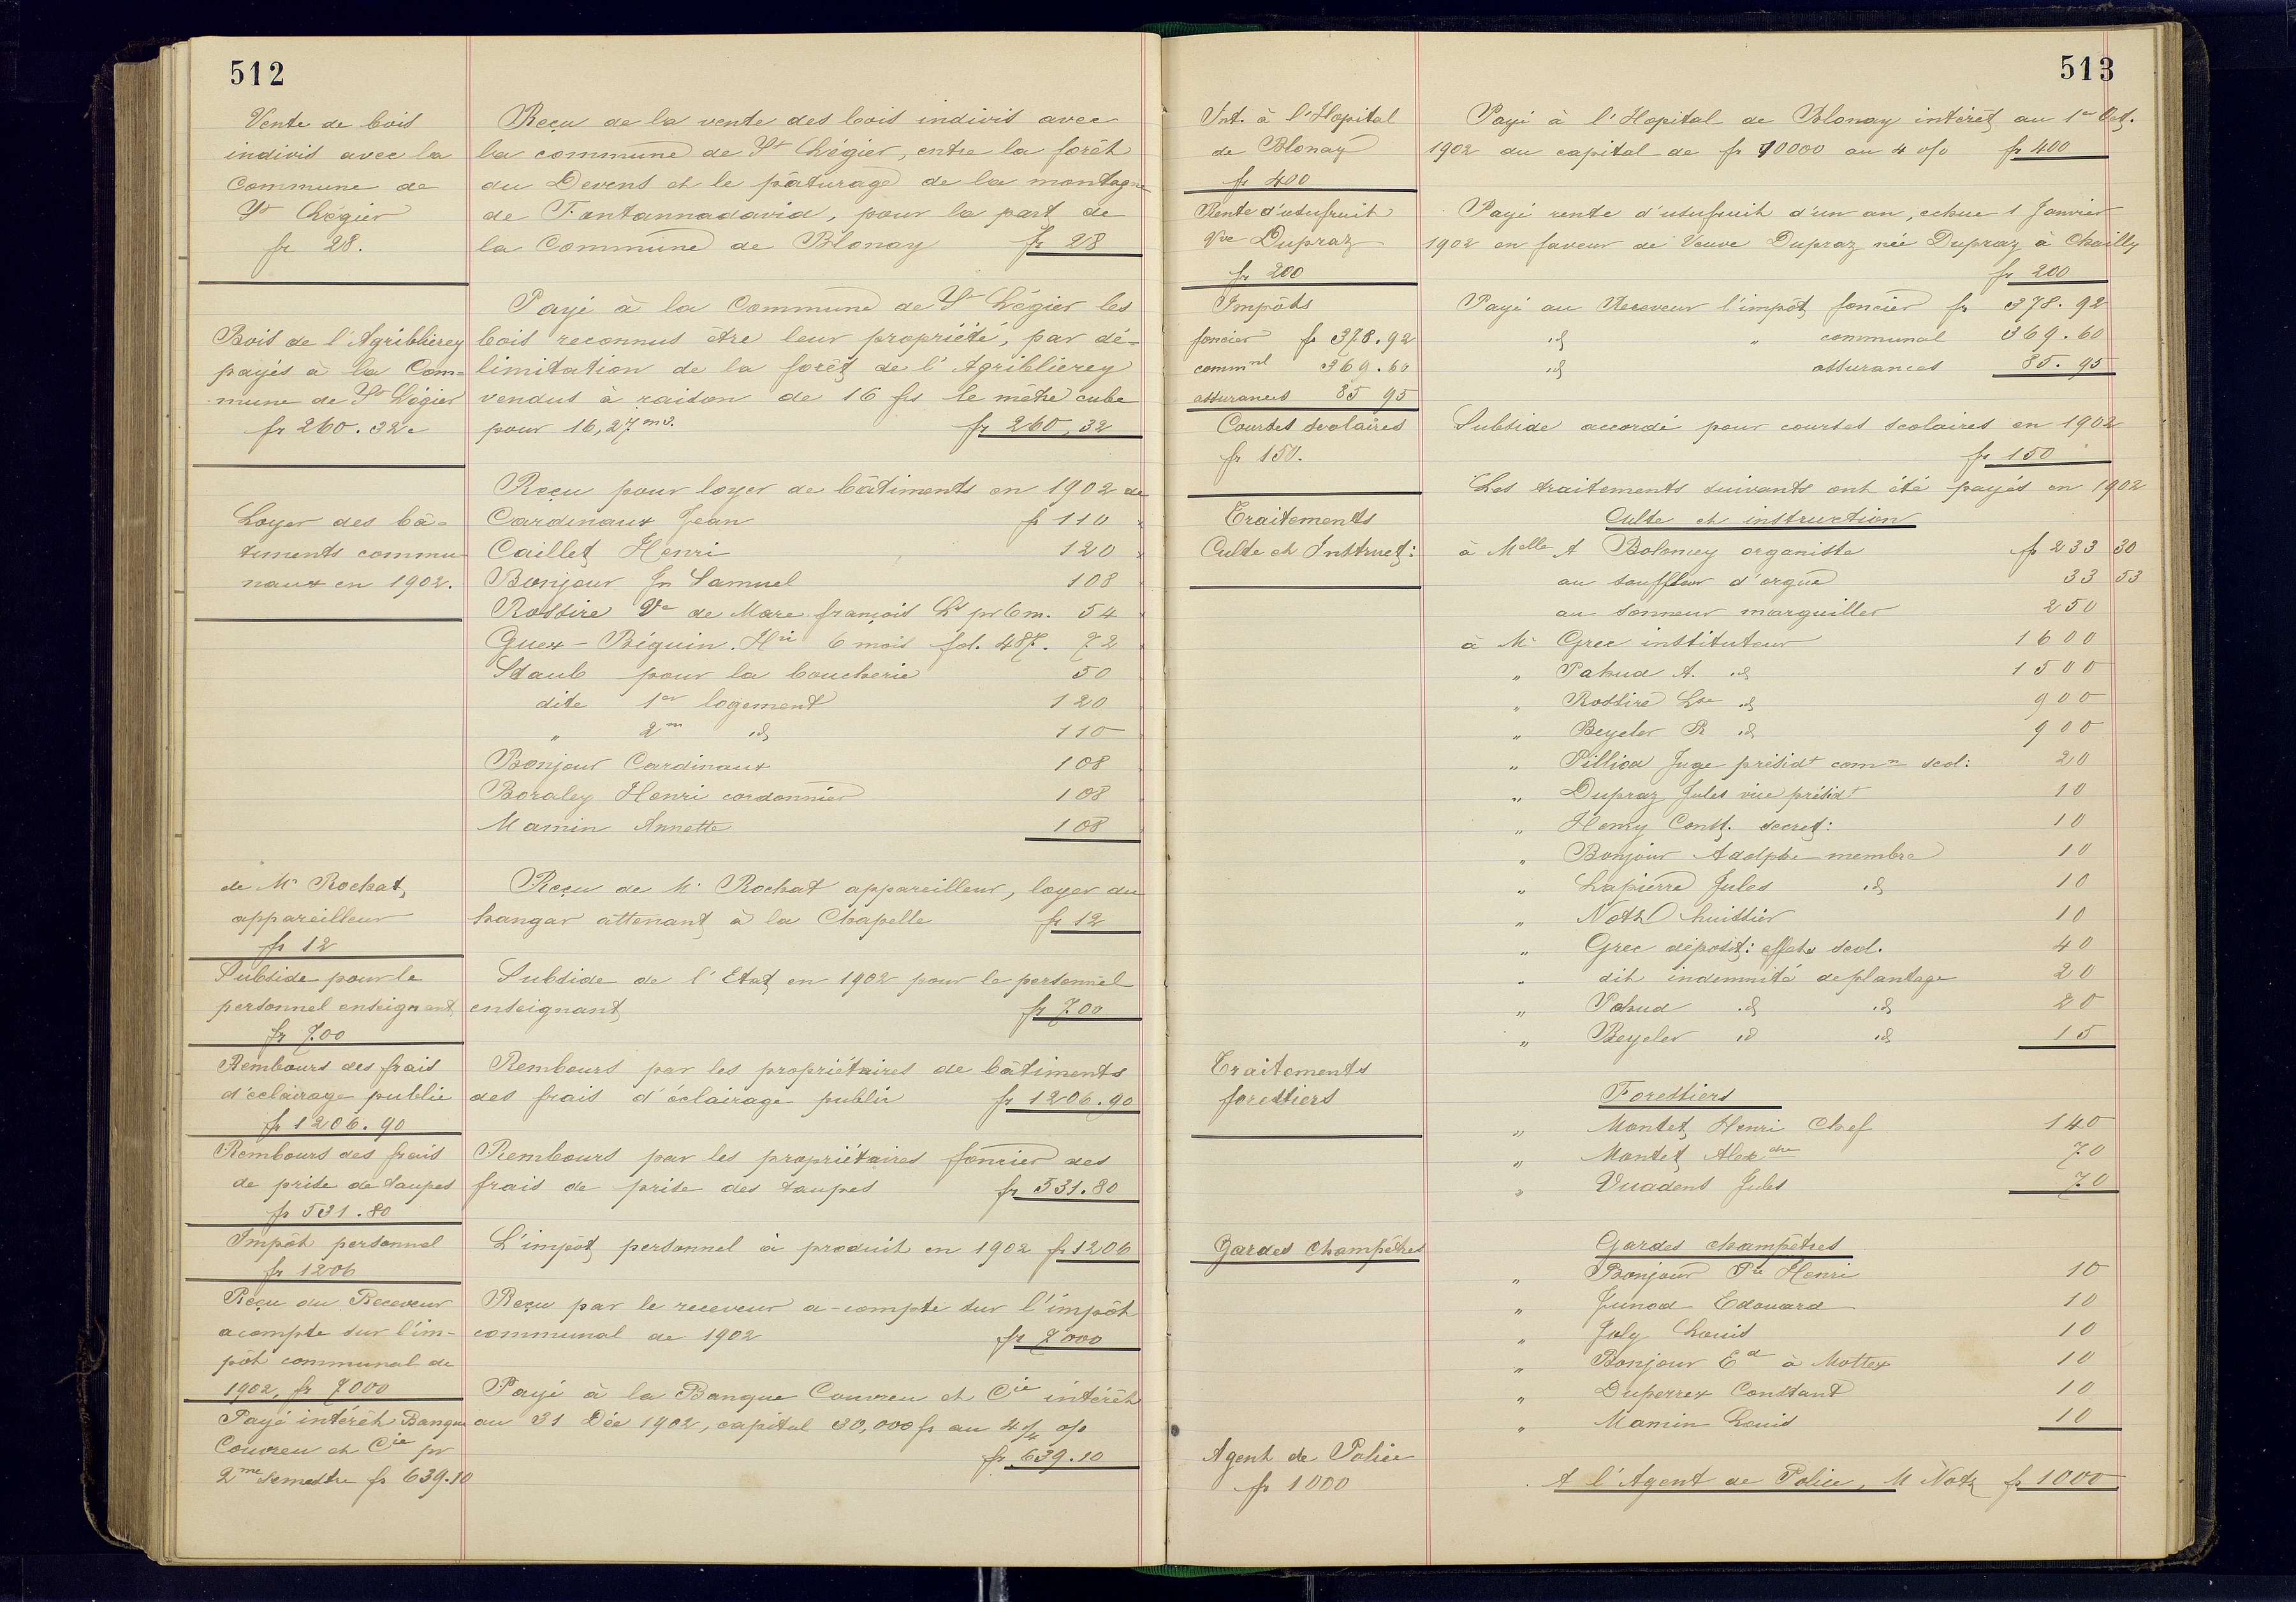 512
Vente de bois
indivis avec la
Commune de
St Légier
fr 28.
Bois de l'Agriblierey
payés à la Com-
mune de St Légier
fr 260.32c
Loyer des bâ-
timents commu
naux en 1902.
de Mr Rochat,
appareilleur
fr 12
Subside pour le
personnel enseignant
fr 700
Rembours des frais
d'éclairage public
fr 1206.90
Rembours des frais
de prise de taupes
fr 531.80
Impôt personnel
fr 1206
Reçu du Receveur
acompte sur l'im-
pôt communal de
1902, fr 7000
Payé intérêt Banque
Couvreu et Cie pr
2me semestre fr 639.10
Reçu de la vente des bois indivis avec
la commune de St Légier, entre la forêt
du Devens et le pâturage de la montagne
de Fontannadavid, pour la part de
la Commune de Blonay fr 28
Payé à la Commune de St Légier les
bois reconnus être leur propriété, par dé-
limitation de la forêt de l'Agriblierey
vendus à raison de 16 frs le mètre cube
pour 16,27 m3. fr 260,32
Reçu pour loyer de bâtiments en 1902 de
Cardinaux Jean fr 110
Caillet Henri 120
Bonjour Jn Samuel 108
Rossire Ve de Marc françois Ls pr 6 m. 54
Guex-Béguin. Hri 6 mois fol. 487. 72
Staub pour la boucherie 50
dite 1er logement 120
" 2m id 110
Bonjour Cardinaux 108
Boraley Henri cordonnier 108
Mamin Annette 108
Reçu de Mr Rochat appareilleur, loyer du
hangar attenant à la Chapelle fr 12
Subside de l'Etat en 1902 pour le personnel
enseignant fr 700
Rembours par les propriétaires de bâtiments
des frais d'éclairage public fr 1206.90
Rembours par les propriétaires foncier des
frais de prise des taupes fr 531.80
L'impôt personnel à produit en 1902 fr 1206
Reçu par le receveur a-compte sur l'impôt
communal de 1902 fr 7000
Payé à la Banque Couvreu et Cie intérêt
au 31 Déc 1902, capital 30,000 fr au 4 1/4 o/o
fr 639.10
513
Int. à l'Hopital
de Blonay
fr 400
Rente d'usufruit
Vve Dupraz
fr 200
Impôts
foncier fr 378.92
commnl 369.60
assurances 85 95
Courses scolaires
fr 150.
Traitements
Culte et Instruct:
Traitements
forestiers
Gardes Champêtres
Agent de Police
fr 1000
Payé à l'Hopital de Blonay intérêt au 1er Oct.
1902 du capital de fr 10000 au 4 o/o fr 400
Payé rente d'usufruit d'un an, echue 1 Janvier
1902 en faveur de Veuve Dupraz née Dupraz à Chailly
fr 200
Payé au Receveur l'impôt foncier fr 378.92
id " communal 369.60
id assurances 85.95
Subside accordé pour courses scolaires en 1902
fr 150
Les traitements suivants ont été payés en 1902
Culte et instruction
à Melle A Bolomey organiste fr 233 30
au souffleur d'orgue 33 53
au sonneur marguiller 250
à Mr Grec instituteur 1600
" Pahud A. id 1500
" Rossire Lse id 900
" Beyeler R id 900
" Pilliod Juge présidt comn scol: 20
" Dupraz Jules vice présidt 10
" Henry Const. secret: 10
" Bonjour Adolphe membre 10
" Lapierre Jules id 10
" Notz huissier 10
" Grec déposit: effets scol. 40
" dit indemnité de plantage 20
" Pahud id id 20
" Beyeler id id 15
Forestiers
" Montet Henri Chef 140
" Montet Alexdre 70
" Vuadens Jules 70
Gardes champêtres
" Bonjour Pre Henri 10
" Junod Edouard 10
" Joly Louis 10
" Bonjour Ed à Mottex 10
" Duperrex Constant 10
" Mamin Louis 10
A l'Agent de Police, M Notz fr 1000